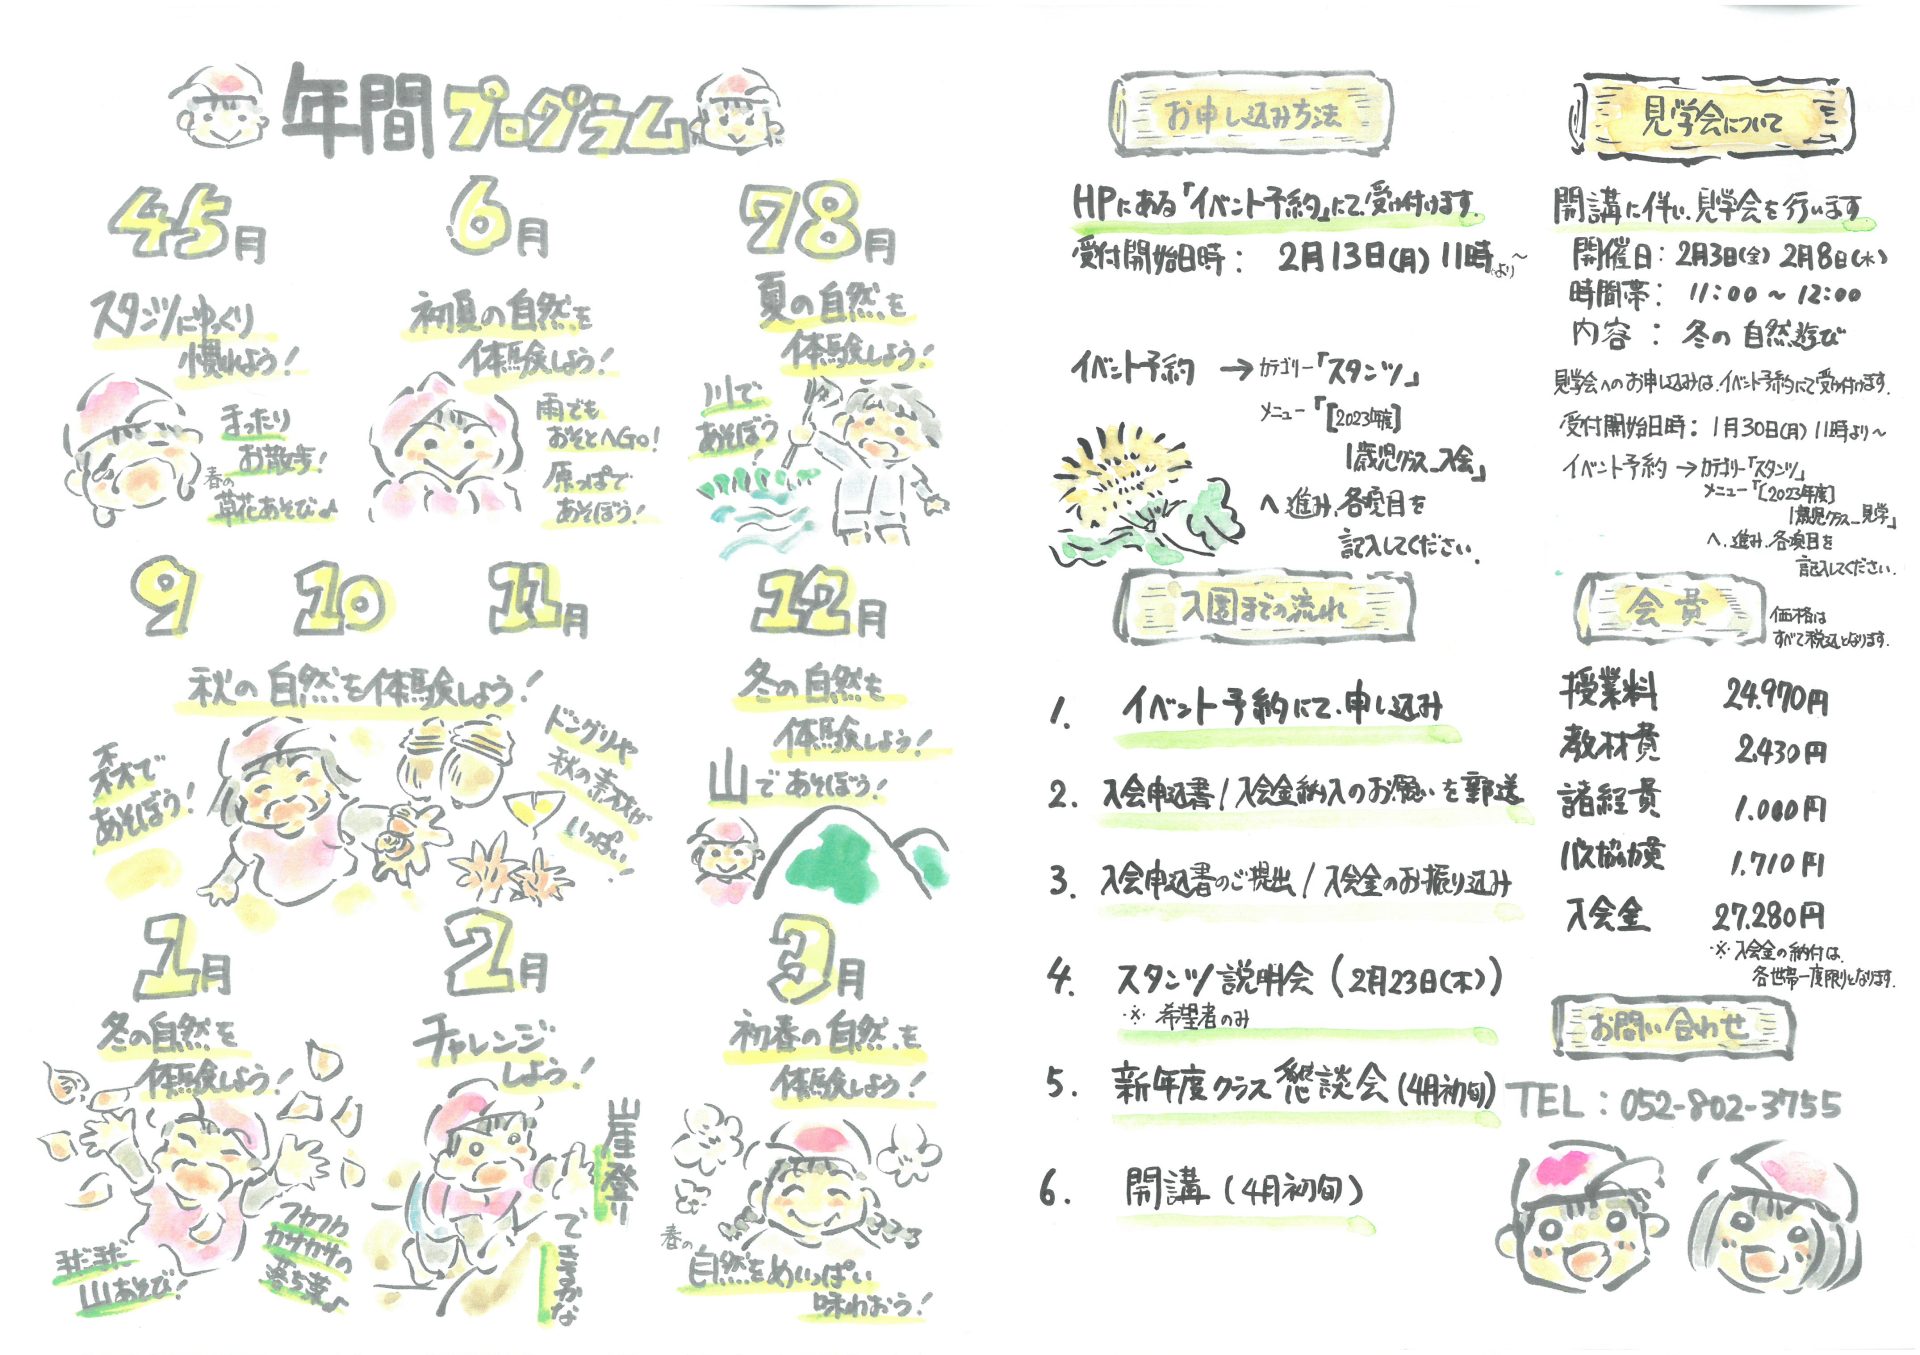 年間プログラム
4 5月
スタンツにゆっくり
慣れよう!
まったり
お散歩!
春の
草花あそび♪
6月
初夏の自然を
体験しよう!
雨でも
おそとへGo!
原っぱで
あそぼう!
7 8月
夏の自然を
体験しよう!
川で
あそぼう!
9 10 11月
秋の自然を体験しよう!
森で
あそぼう!
ドングリや
秋の素材が
いっぱい!
12月
冬の自然を
体験しよう!
山であそぼう!
1月
冬の自然を
体験しよう!
まだまだ
山あそび!
フカフカ
カサカサの
落ち葉♪
2月
チャレンジ
しよう!
山崖登り
できるかな
3月
初春の自然を
体験しよう!
春の
自然をめいっぱい
味わおう!
お申し込み方法
HPにある「イベント予約」にて受け付けます.
受付開始日時: 2月13日(月) 11時より~
イベント予約 → カテゴリー「スタンツ」
メニュー「[2023年度]
1歳児クラス_入会」
へ進み、各項目を
記入してください.
入園までの流れ
1. イベント予約にて、申し込み
2. 入会申込書/入会金納入のお願いを郵送
3. 入会申込書のご提出/入会金のお振り込み
4. スタンツ説明会(2月23日(木))
※ 希望者のみ
5. 新年度クラス懇談会(4月初旬)
6. 開講(4月初旬)
見学会について
開講に伴い、見学会を行います
開催日: 2月3日(金) 2月8日(水)
時間帯: 11:00~12:00
内容 : 冬の自然遊び
見学会へのお申し込みは、イベント予約にて受け付けます.
受付開始日時: 1月30日(月) 11時より~
イベント予約 → カテゴリー「スタンツ」
メニュー「[2023年度]
1歳児クラス_見学」
へ、進み、各項目を
記入してください.
会費
価格は
すべて税込となります.
授業料 24.970円
教材費 2.430円
諸経費 1.000円
バス協力費 1.710円
入会金 27.280円
※ 入会金の納付は、
各世帯一度限りとなります.
お問い合わせ
TEL:052-802-3755